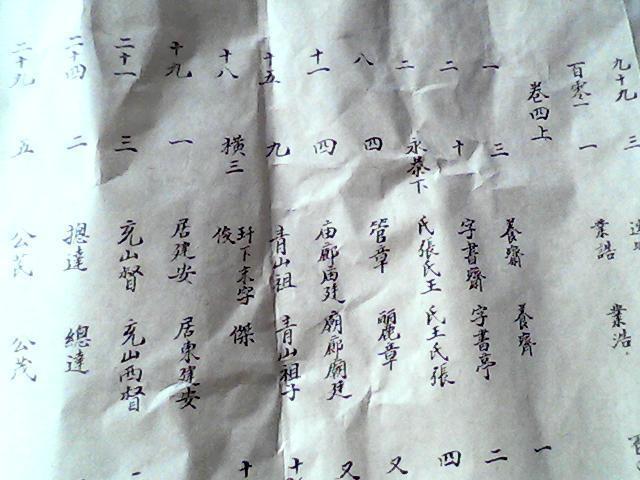 九十九 三
百零一 一 業誥 業浩
卷四上
一 三 養齋 養齊 一
二 十 字書齋 字書亭 二
二 永恭下 氏張氏王 氏王氏張 四
八 四 管章 麗章 又
十一 四 庙廊庙廷 廟廊廟廷 又
十五 九 青山祖 青山祖子
十八 横三 玕下末字俊 傑 十
十九 一 居建安 居東建安
二十一 三 充山督 充山西督
二十四 二 摠達 總達
二十九 五 公芪 公茂